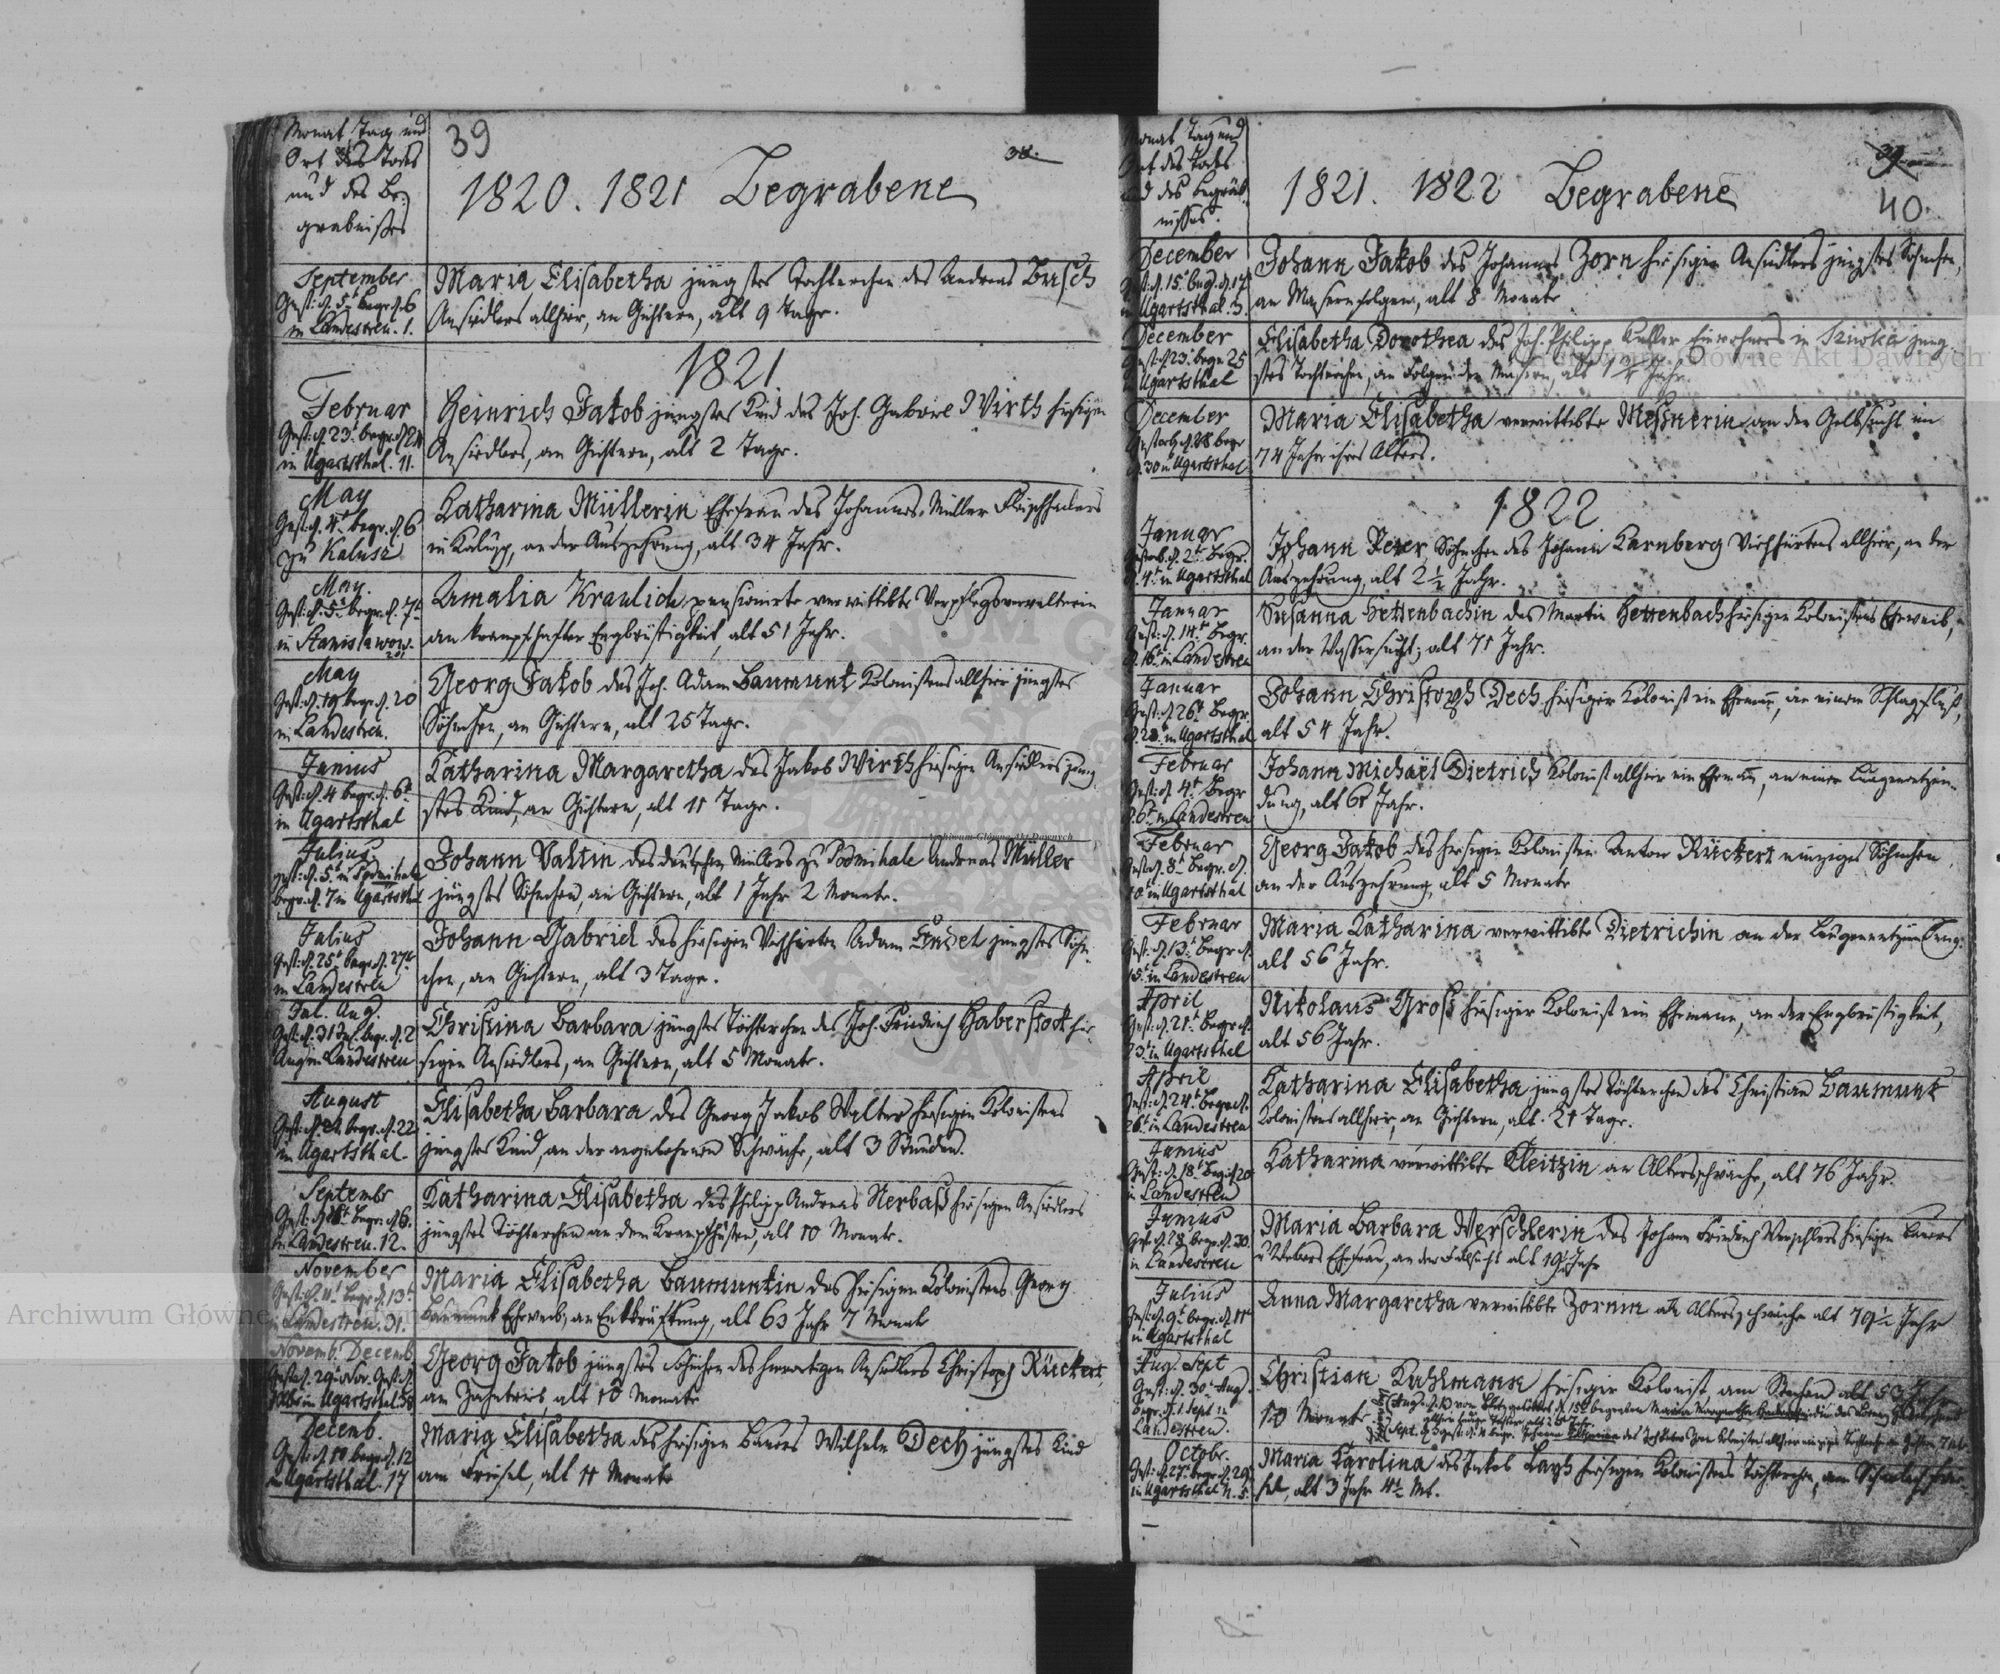 Monat Tag und
Ort des Todes
und des Be-
gräbnißes
39
38.
1820. 1821 Begrabene
September
Gest: d. 5t begr. d. 6
in Landestreu. 1.
Maria Elisabetha jüngstes Töchterchen des Andreas Busch
Ansiedlers allhier, an Gichtern, alt 9 Tage.
1821
Februar
Gest: d. 23t begr. d. 24
in Ugartsthal. 11.
Heinrich Jakob jüngstes Kind des Joh. Gabriel Wirth hiesigen
Ansiedlers, an Gichtern, alt 2 Tage.
May
Gest: d. 4t begr. d. 6
zu Kalusz
Katharina Müllerin Ehefrau des Johannes Müller
in an der Auszehrung, alt 34 Jahr.
May.
Gest: d. 5t begr. d. 7t
in Stanislawow.
Amalia Kraulich pensionirte verwittibte Verpflegsverwalterin
an krampfhafter Engbrüstigkeit, alt 51 Jahr.
May
Gest: d. 19 begr. d. 20
in Landestreu.
Georg Jakob des Joh. Adam Baumunk Kolonistens allhier jüngstes
Söhnchen, an Gichtern, alt 25 Tage.
Junius
Gest: d. 4 begr. d. 6t
in Ugartsthal
Katharina Margaretha des Jakob Wirth hiesigen Ansiedlers jüng-
stes Kind, an Gichtern, alt 11 Tage.
Archiwum Główne Akt Dawnych
Julius
gest: d. 5t in Podmihale
begr. d. 7 in Ugartsthal
Johann Valtin des deutschen Müllers zu Podmihale Andreas Müller
jüngstes Söhnchen, an Gichtern, alt 1 Jahr 2 Monate.
Julius
Gest: d. 25t begr. d. 27t
in Landestreu
Johann Gabriel des hiesigen Viehhirten Adam jüngstes Söhn-
chen, an Gichtern, alt 3 Tage.
Jul. Aug.
Gest: d. 31 Jul. begr. d. 2
Aug in Landestreu
Christina Barbara jüngstes Töchterchen des Joh. Friedrich Haberstock hie-
sigen Ansiedlers, an Gichtern, alt 5 Monate.
August
Gest: d. 21. begr. d. 22
in Ugartsthal.
Elisabetha Barbara des Georg Jakob Walter hiesigen Kolonistens
jüngstes Kind, an der angebohrnen Schwäche, alt 3 Stunden.
Septembr
begr. d. 6.
in Landestreu. 12.
Katharina Elisabetha des Philipp Andreas Nerbaß hiesigen Ansiedlers
jüngstes Töchterchen an dem Krampfhusten, alt 10 Monate.
November
Gest: d. 11t begr. d. 13t
in Landestreu. 31.
Maria Elisabetha Baumunkin des hiesigen Kolonistens Georg
Baumunk Eheweib, an Entkräftung, alt 63 Jahr 7 Monate
Novemb. Decemb
in Ugartsthal 38
Georg Jakob jüngstes Söhnchen des Ansiedlers Christoph Rückert,
am alt 10 Monate
Decemb.
Gest: d. 10 begr. d. 12
in Ugartsthal. 17
Maria Elisabetha des hiesigen Bauers Wilhelm Dech jüngstes Kind
am Friesel, alt 11 Monate
Monat Tag und
Ort des Todes
und des Begräb-
nisses.
39
40.
1821. 1822 Begrabene
December
Gest: d. 15t begr. d. 17
in Ugartsthal. 3.
Johann Jakob des Johannes Zorn hiesigen Ansiedlers jüngstes Söhnchen,
an Masernfolgen, alt 8 Monate
December
Gest: d. 23t begr. 25
in Ugartsthal
Elisabetha Dorothea des Joh. Philipp Einwohners in jüng-
stes Töchterchen, an Folgen der Masern, alt Jahr.
Archiwum Główne Akt Dawnych
December
Gestorb. d. 28 begr
d. 30 in Ugartsthal
Maria Elisabetha verwittibte Meßnerin an der Gelbsucht im
74 Jahr ihres Alters.
1822
Januar
Gestorb. d. 2t begr.
d. 4t in Ugartsthal
Johann Peter Söhnchen des Johann Karnberg Viehhirtens allhier, an der
Auszehrung, alt 2½ Jahr.
Januar
Gest: d. 14t begr.
d. 16t in Landestreu
Susanna Hettenbachin des Martin Hettenbach hiesigen Kolonistens Eheweib,
an der Wassersucht, alt 71 Jahr.
Januar
Gest: d. 26t begr.
d. 28t in Ugartsthal
Johann Christoph Dech hiesiger Kolonist ein Ehemann, an einem Schlagfluß,
alt 54 Jahr.
Februar
Gest: d. 4t begr
d. 6t in Landestreu
Johann Michael Dietrich Kolonist allhier ein Ehemann, an einer Lungenentzün-
dung, alt 61 Jahr.
Februar
Gest: d. 8t begr. d.
10t in Ugartsthal
Georg Jakob des hiesigen Kolonisten Anton Rückert einziges Söhnchen
an der Auszehrung, alt 5 Monate
Februar
Gest: d. 13t begr. d.
15t in Landestreu
Maria Katharina verwittibte Dietrichin an der Lungenentzündung.
alt 56 Jahr.
April
Gest: d. 21t begr. d.
23t in Ugartsthal
Nikolaus Groß hiesiger Kolonist ein Ehemann, an der Engbrüstigkeit,
alt 56 Jahr.
April
Gest: d. 24t begr. d.
26t in Landestreu
Katharina Elisabetha jüngstes Töchterchen des Christian Baumunk
Kolonistens allhier, an Gichtern, alt 21 Tage.
Junius
Gest: d. 18t begr. d. 20
in Landestreu
Katharina verwittibte Kleitzin an Altersschwäche, alt 76 Jahr.
Junius
Gest. d. 28 begr. d. 30
in Landestreu
Maria Barbara Werschlerin des Johann Friedrich Werschlers hiesigen Bauers
u Webers Ehefrau, an der alt Jahr
Julius
Gest: d. 9t begr. d. 11t
in Ugartsthal
Anna Margaretha verwittibte Zornin an Altersschwäche alt 79½ Jahr
Aug. Sept
Gest: d. 30t Aug.
begr. d. 1 Sept in
Landestreu.
Christian Kuhlmann hiesiger Kolonist am alt 53 Jahr
10 Monate.
Octobr.
Gest: d. 27t begr. d. 29
in Ugartsthal N. 5.
Maria Karolina des Jakob hiesigen Kolonistens Töchterchen, am
alt 3 Jahr 4½ Mt.
Archiwum Główne